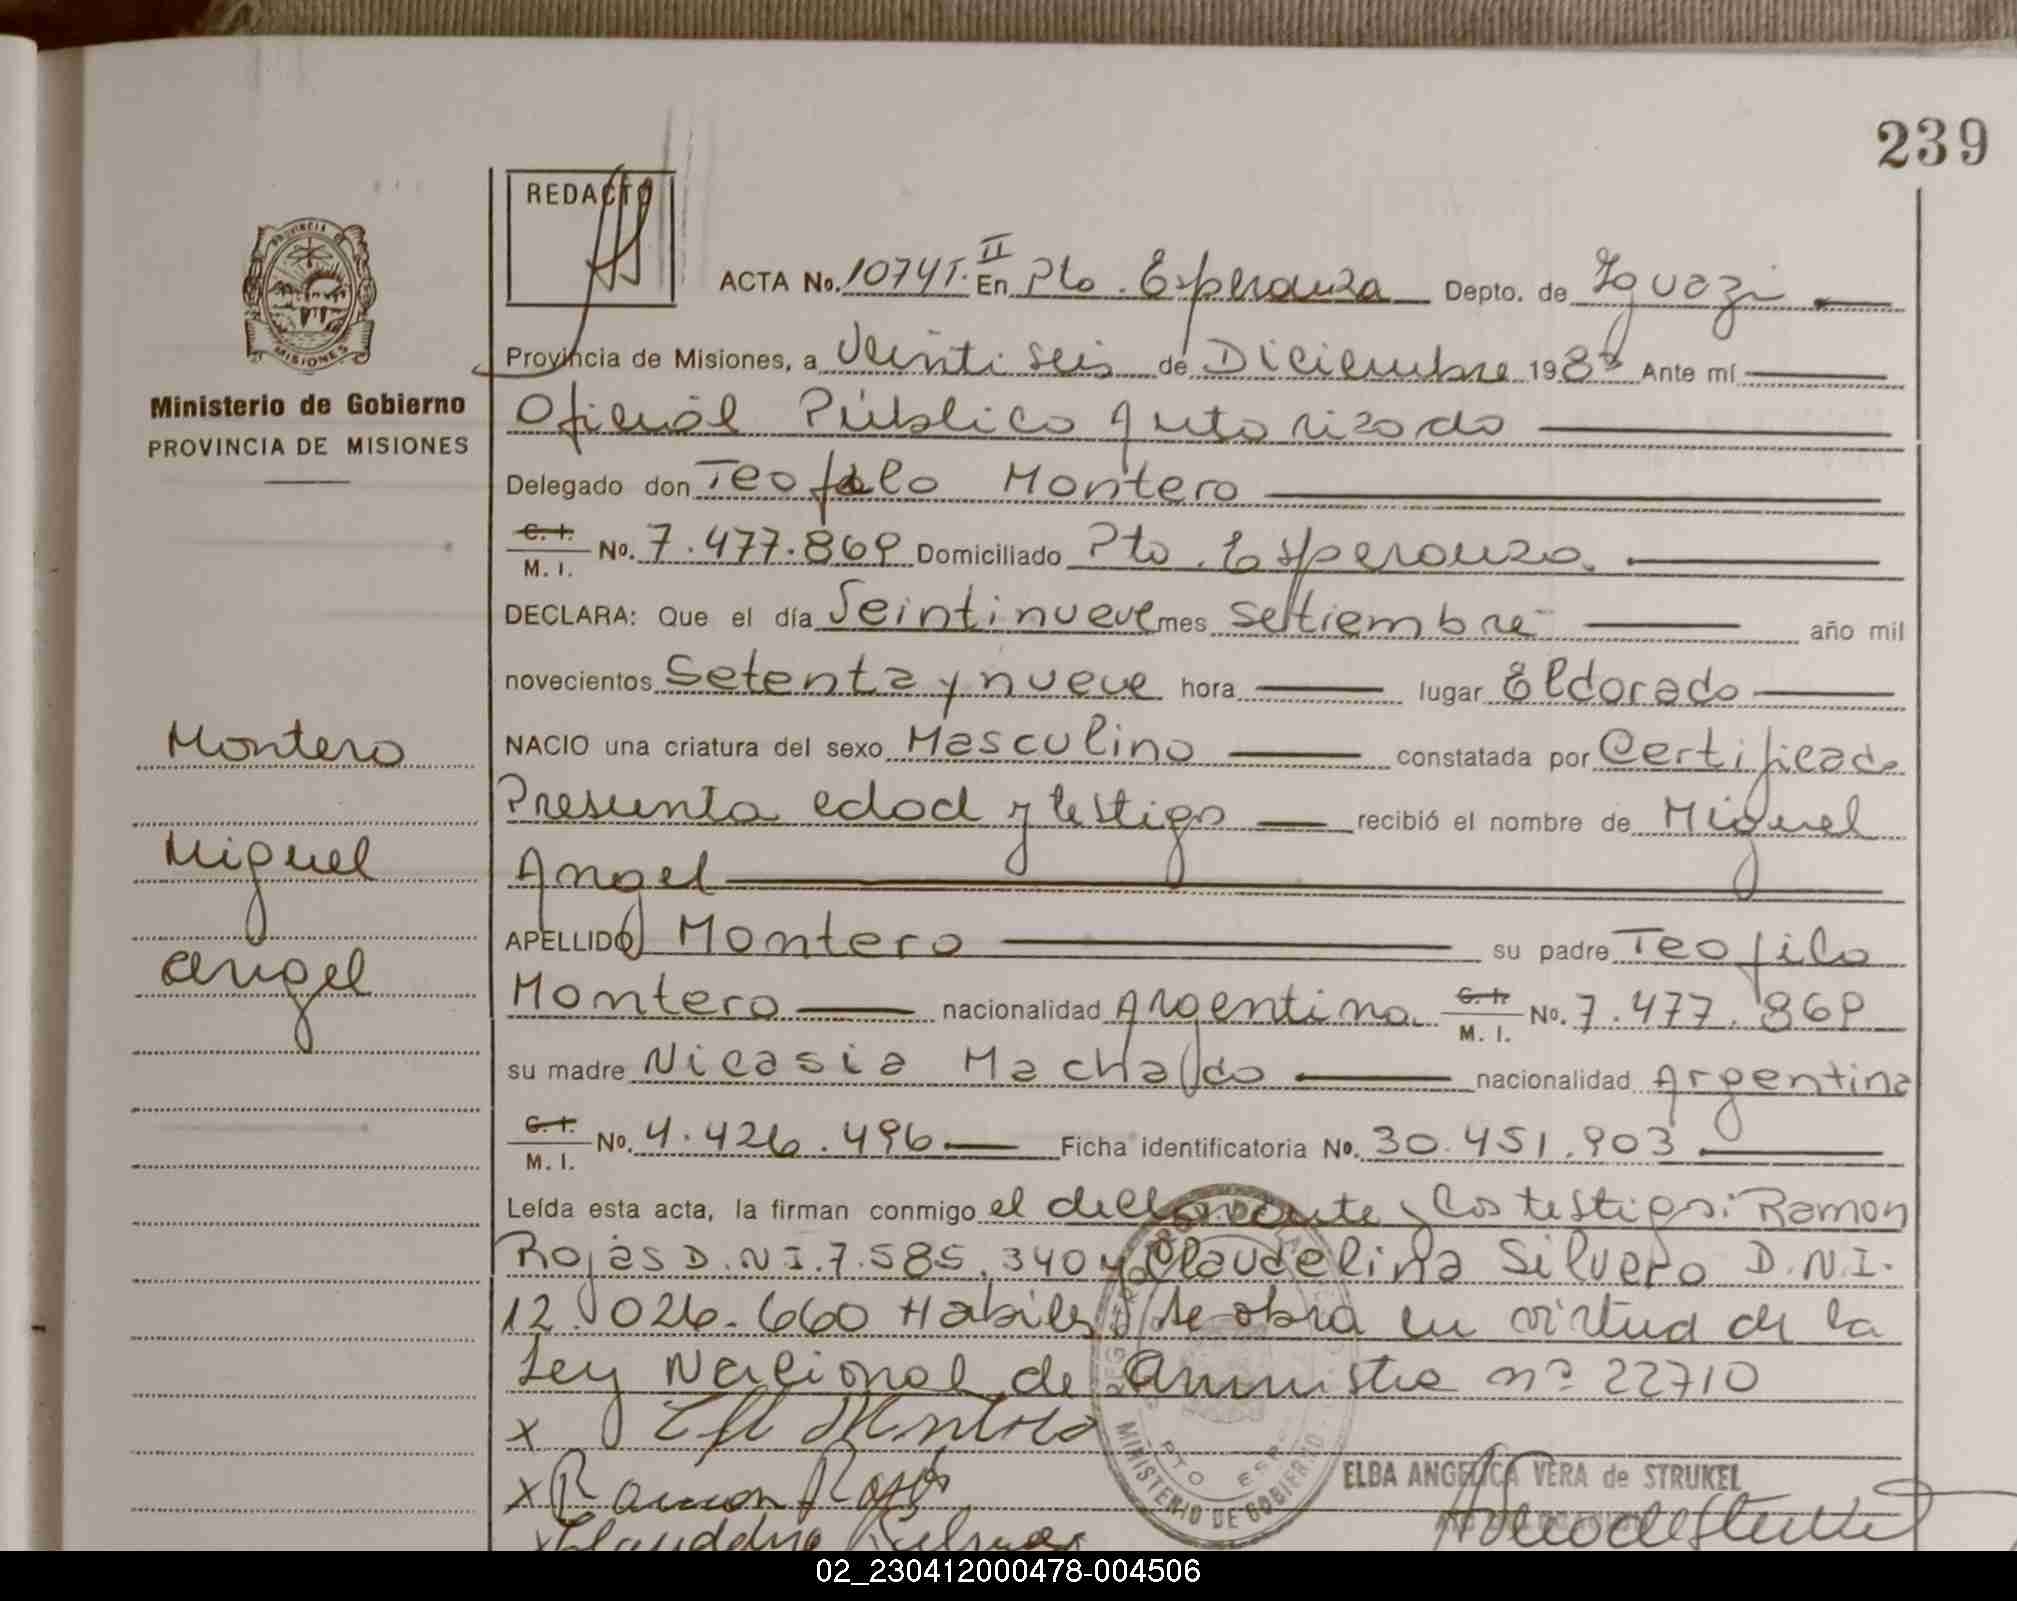 239
REDACTO
ACTA No. 1074 T. II En Pto. Esperanza Depto. de Iguazú
Provincia de Misiones, a Veinti seis de Diciembre 198 Ante mí
Oficial Público Autorizado
Delegado don Teofilo Montero
C. I. M. I. No. 7.477.869 Domiciliado Pto. Esperanza.
DECLARA: Que el día Veintinueve mes Setiembre año mil
novecientos Setenta y nueve hora lugar Eldorado
NACIO una criatura del sexo Masculino constatada por Certificado
Presunta edad y testigo recibió el nombre de Miguel
Angel
APELLIDO Montero su padre Teofilo
Montero nacionalidad Argentina C. I. M. I. No. 7.477.869
su madre Nicasia Machado nacionalidad Argentina
C. I. M. I. No. 4.426.496 Ficha identificatoria No. 30.451.903
Leída esta acta, la firman conmigo el declarante y los testigos: Ramon
Rojas D.N.I. 7.585.340 y Claudelina Silvero D.N.I.
12.026.660 Habiles Se obra en virtud de la
Ley Nacional de Amnistia nº 22710
x Montero
x Ramon Rojas
x
PROVINCIA DE
MISIONES
Ministerio de Gobierno
PROVINCIA DE MISIONES
Montero
Miguel
angel
MINISTERIO DE GOBIERNO
PTO ESP.
ELBA ANGELICA VERA de STRUKEL
02_230412000478-004506